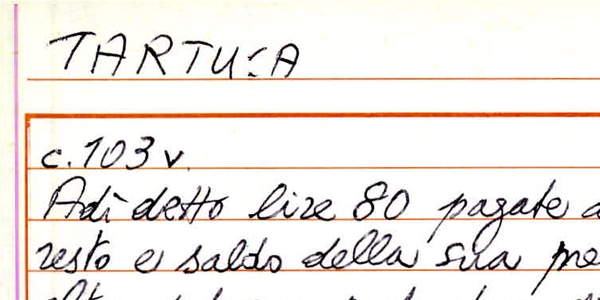 TARTUCA
c. 103 v.
Adì detto lire 80 pagate a
resto e saldo della sua